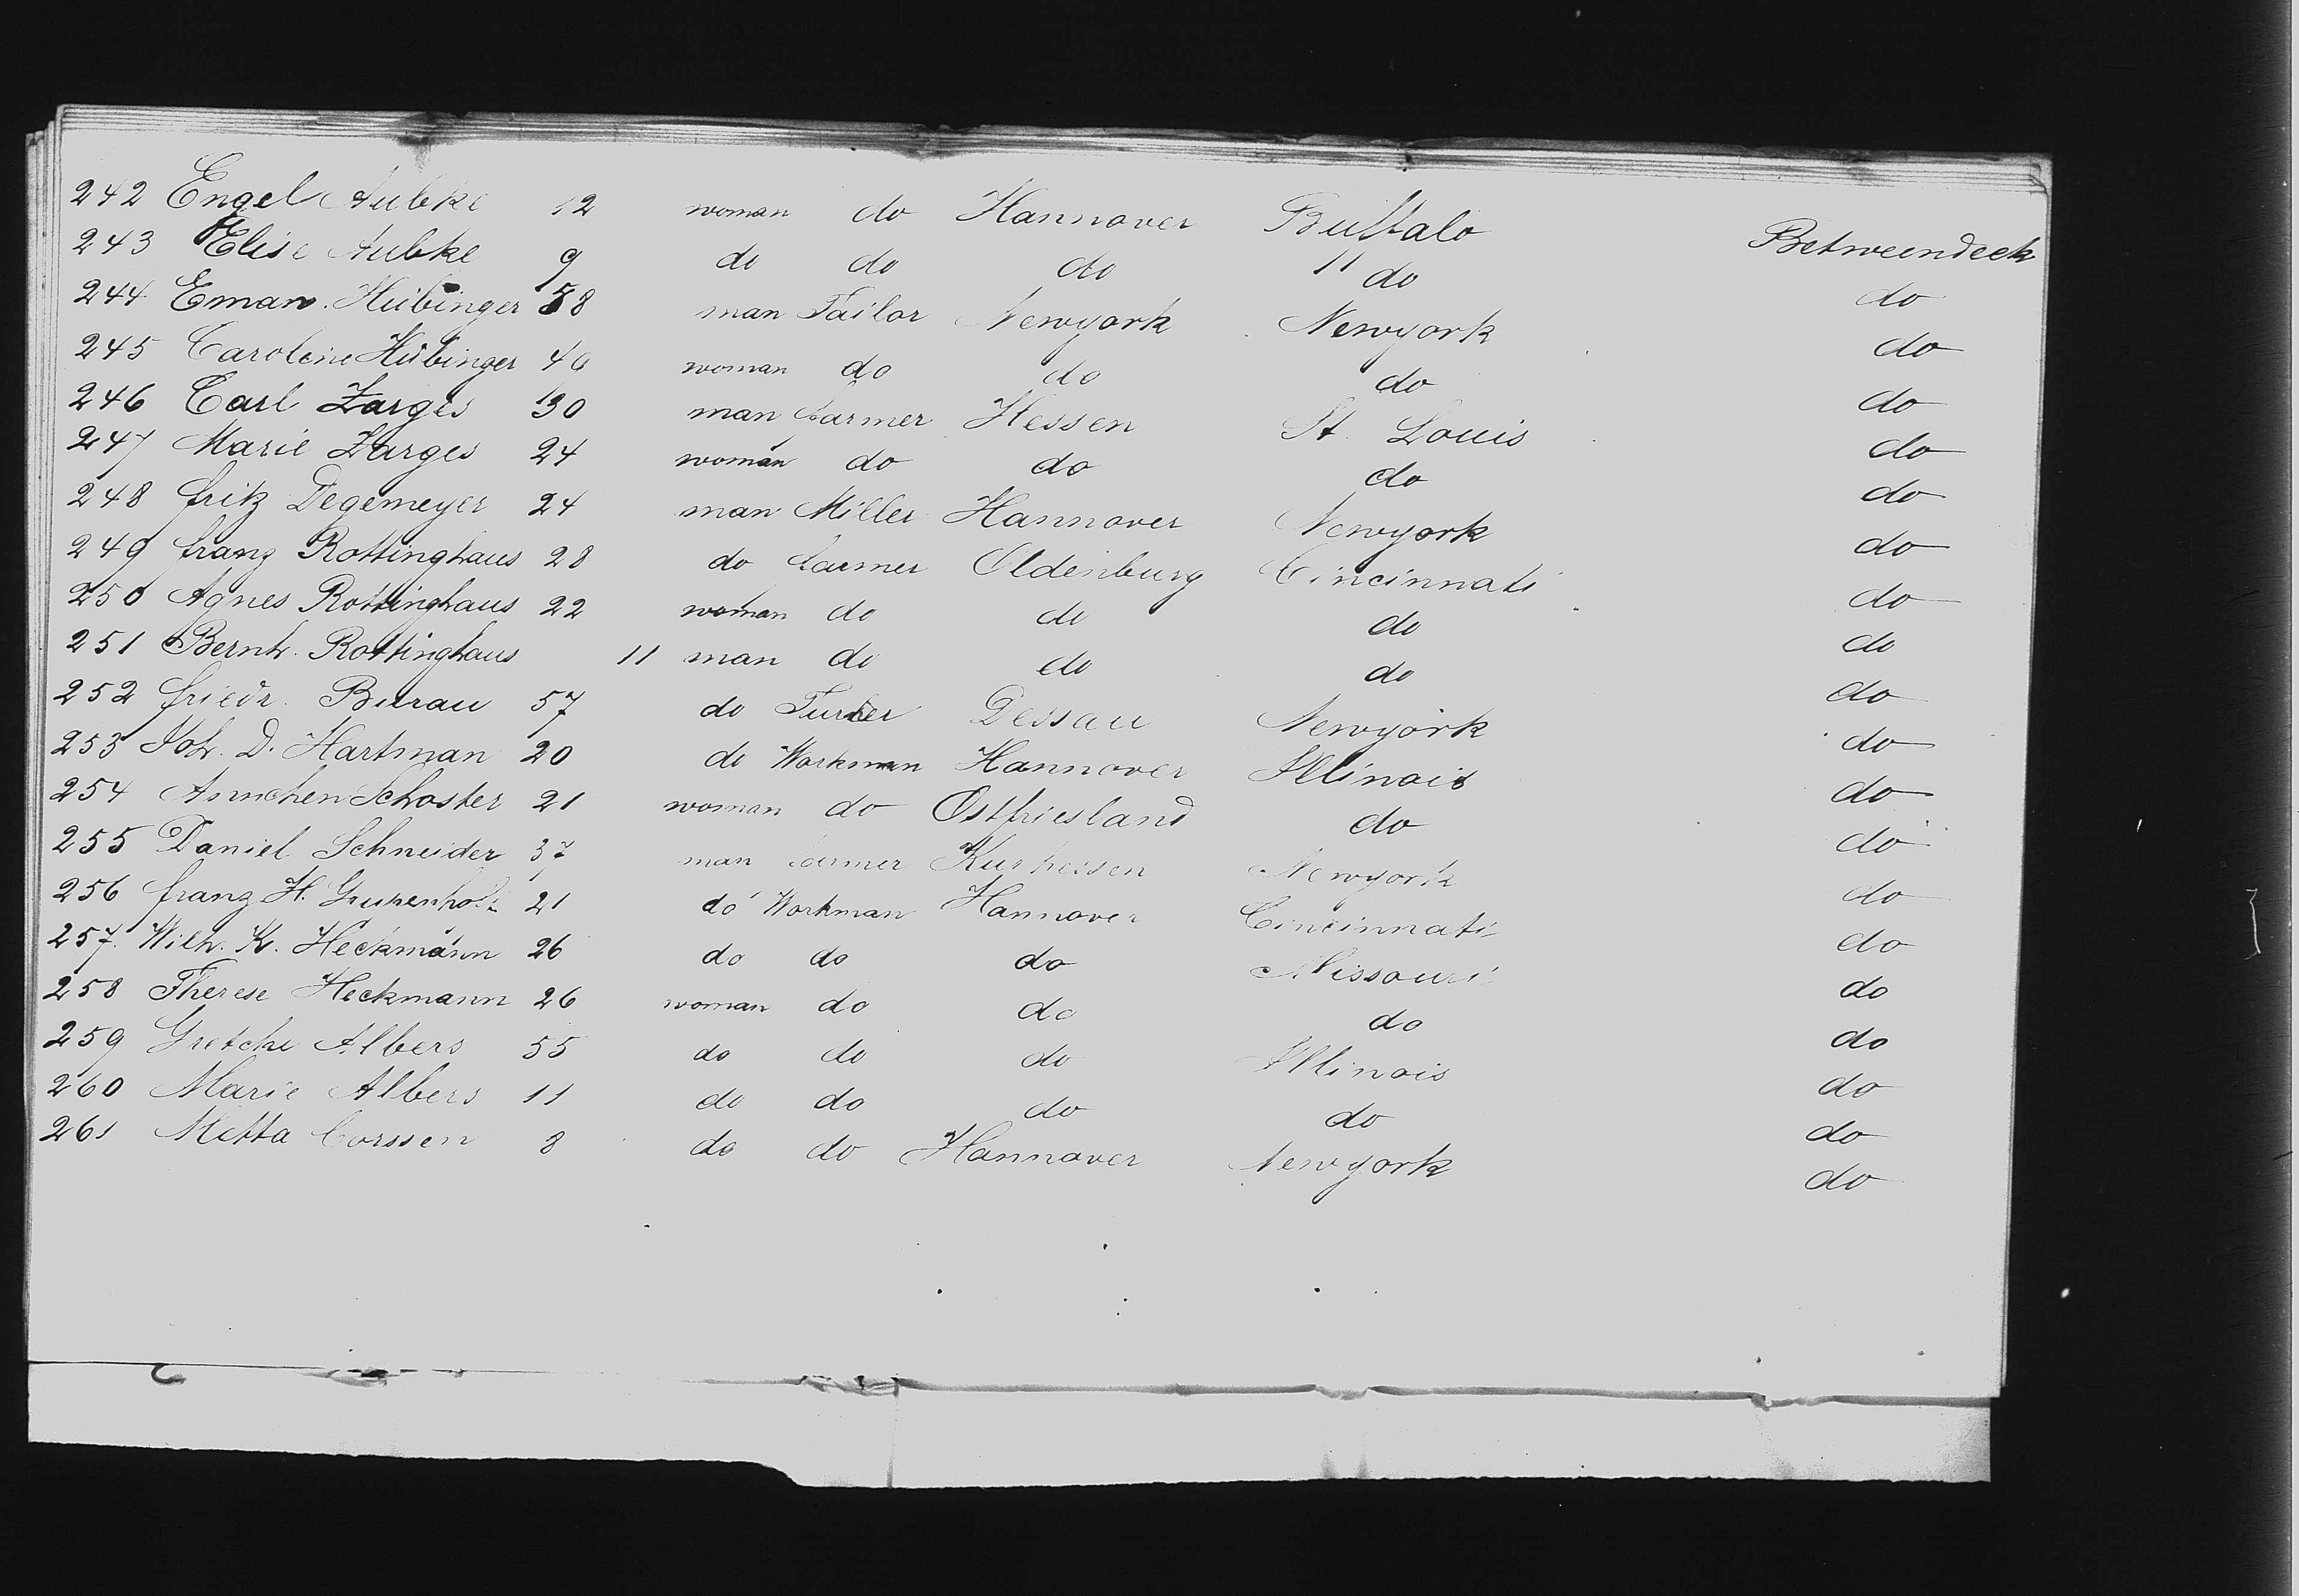 242 Engel Aubke 12 woman do Hannover Buffalo Betweendeck
243 Elise Aubke 9 do do do " do do
244 Eman. Hübinger 58 man Tailor Newyork Newyork do
245 Caroline Hübinger 40 woman do do do do
246 Carl Zarges 30 man farmer Hessen St. Louis do
247 Marie Zarges 24 woman do do do do
248 fritz Degemeyer 24 man Miller Hannover Newyork do
249 franz Rottinghaus 28 do farmer Oldenburg Cincinnati do
250 Agnes Rottinghaus 22 woman do do do do
251 Bernh. Rottinghaus 11 man do do do do
252 friedr. Burau 57 do Dessau Newyork do
253 Joh. D. Hartman 20 do Workman Hannover Illinois do
254 Annchen Schoster 21 woman do Ostfriesland do do
255 Daniel Schneider 37 man farmer Kurhessen Newyork do
256 franz H. 21 do Workman Hannover Cincinnati do
257. Wilh. K. Heckmann 26 do do do Missouri do
258 Therese Heckmann 26 woman do do do do
259 Gretche Albers 55 do do do Illinois do
260 Marie Albers 11 do do do do do
261 Metta Corssen 8 do do Hannover Newyork do